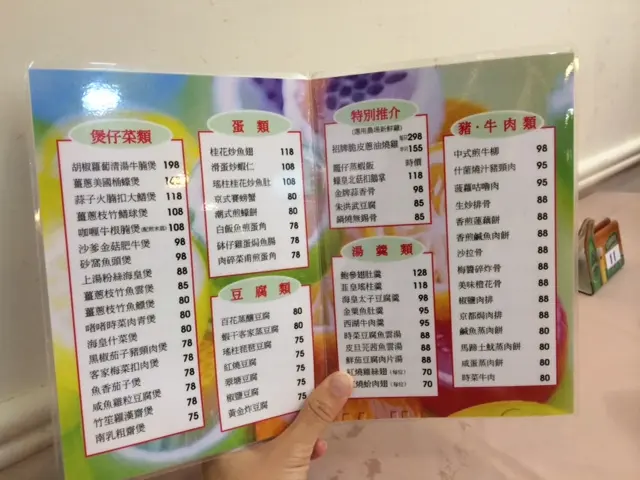 煲仔菜類
胡椒蘿蔔清湯牛腩煲 198
薑蔥美國桶蠔煲
蒜子火腩扣大鱔煲 118
薑蔥枝竹鯇球煲 108
咖喱牛根腩煲 108
沙爹金菇肥牛煲 98
砂窩魚頭煲 98
上湯粉絲海皇煲 88
薑蔥枝竹魚雲煲 85
薑蔥枝竹魚鰾煲 80
啫啫時菜肉青煲 80
海皇什菜煲 80
黑椒茄子豬頸肉煲 78
客家梅菜扣肉煲 78
魚香茄子煲 78
咸魚雞粒豆腐煲 78
竹笙羅漢齋煲 78
南乳粗齋煲 75
蛋類
桂花炒魚翅 118
滑蛋炒蝦仁 108
瑤柱桂花炒魚肚 108
京式賽螃蟹 80
潮式煎蠔餅 80
白飯魚煎蛋角 78
缽仔雞蛋焗魚腸 78
肉碎菜甫煎蛋角 78
豆腐類
百花蒸釀豆腐 80
蝦干客家蒸豆腐 80
瑤柱琵琶豆腐 75
紅燒豆腐 75
翠塘豆腐 75
椒鹽豆腐 75
黃金炸豆腐 75
特別推介
(選用農場新鮮雞)
招牌脆皮蔥油燒雞 298
155
籠仔蒸蝦飯 時價
蠔皇北菇扣鵝掌 118
金牌蒜香骨 98
朱洪武豆腐 85
鍋燒無錫骨 85
湯羹類
鮑參翅肚羹 128
韭皇瑤柱羹 118
海皇太子豆腐羹 98
金粟魚肚羹 95
西湖牛肉羹 95
時菜豆腐魚雲湯 88
皮旦芫茜魚雲湯 88
鮮茄豆腐肉片湯 88
紅燒雞絲翅 (每位) 70
紅燒蛤肉翅 (每位) 70
豬·牛肉類
中式煎牛柳 98
什菌燒汁豬頸肉 95
菠蘿咕嚕肉 95
生炒排骨 88
香煎蓮藕餅 88
香煎鹹魚肉餅 88
沙拉骨 88
梅醬碎炸骨 88
美味欖花骨 88
椒鹽肉排 88
京都焗肉排 88
鹹魚蒸肉餅 80
馬蹄土魷蒸肉餅 80
咸蛋蒸肉餅 80
時菜牛肉 80
11